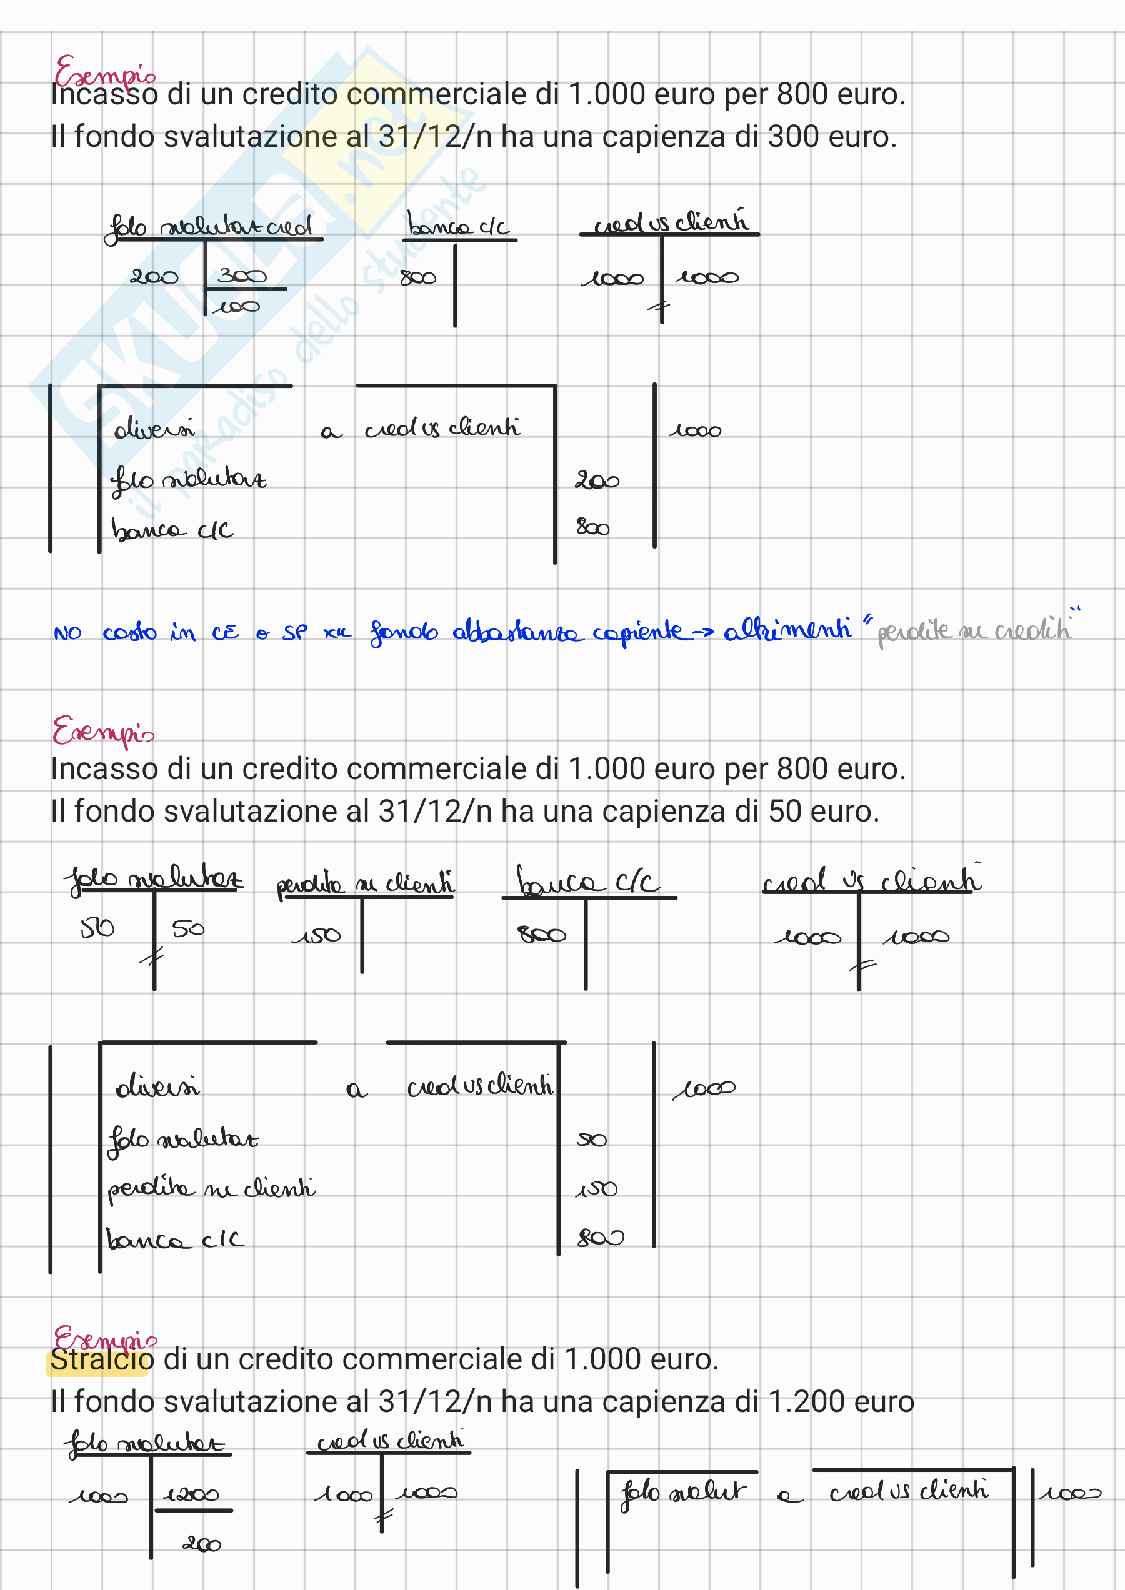 Esempio
Incasso di un credito commerciale di 1.000 euro per 800 euro.
Il fondo svalutazione al 31/12/n ha una capienza di 300 euro.
fdo svalutaz cred banca c/c cred vs clienti
200 300 800 1000 1000
100
diversi a cred vs clienti 1000
fdo svalutaz 200
banca c/c 800
NO costo in CE e SP xk fondo abbastanza capiente → altrimenti "perdite su crediti"
Esempio
Incasso di un credito commerciale di 1.000 euro per 800 euro.
Il fondo svalutazione al 31/12/n ha una capienza di 50 euro.
fdo svalutaz perdite su clienti banca c/c cred vs clienti
50 50 150 800 1000 1000
diversi a cred vs clienti 1000
fdo svalutaz 50
perdite su clienti 150
banca c/c 800
Esempio
Stralcio di un credito commerciale di 1.000 euro.
Il fondo svalutazione al 31/12/n ha una capienza di 1.200 euro
fdo svalutaz cred vs clienti
1000 1200 1000 1000 fdo svalut a cred vs clienti 1000
200
SKUOLA.net
il paradiso dello studente